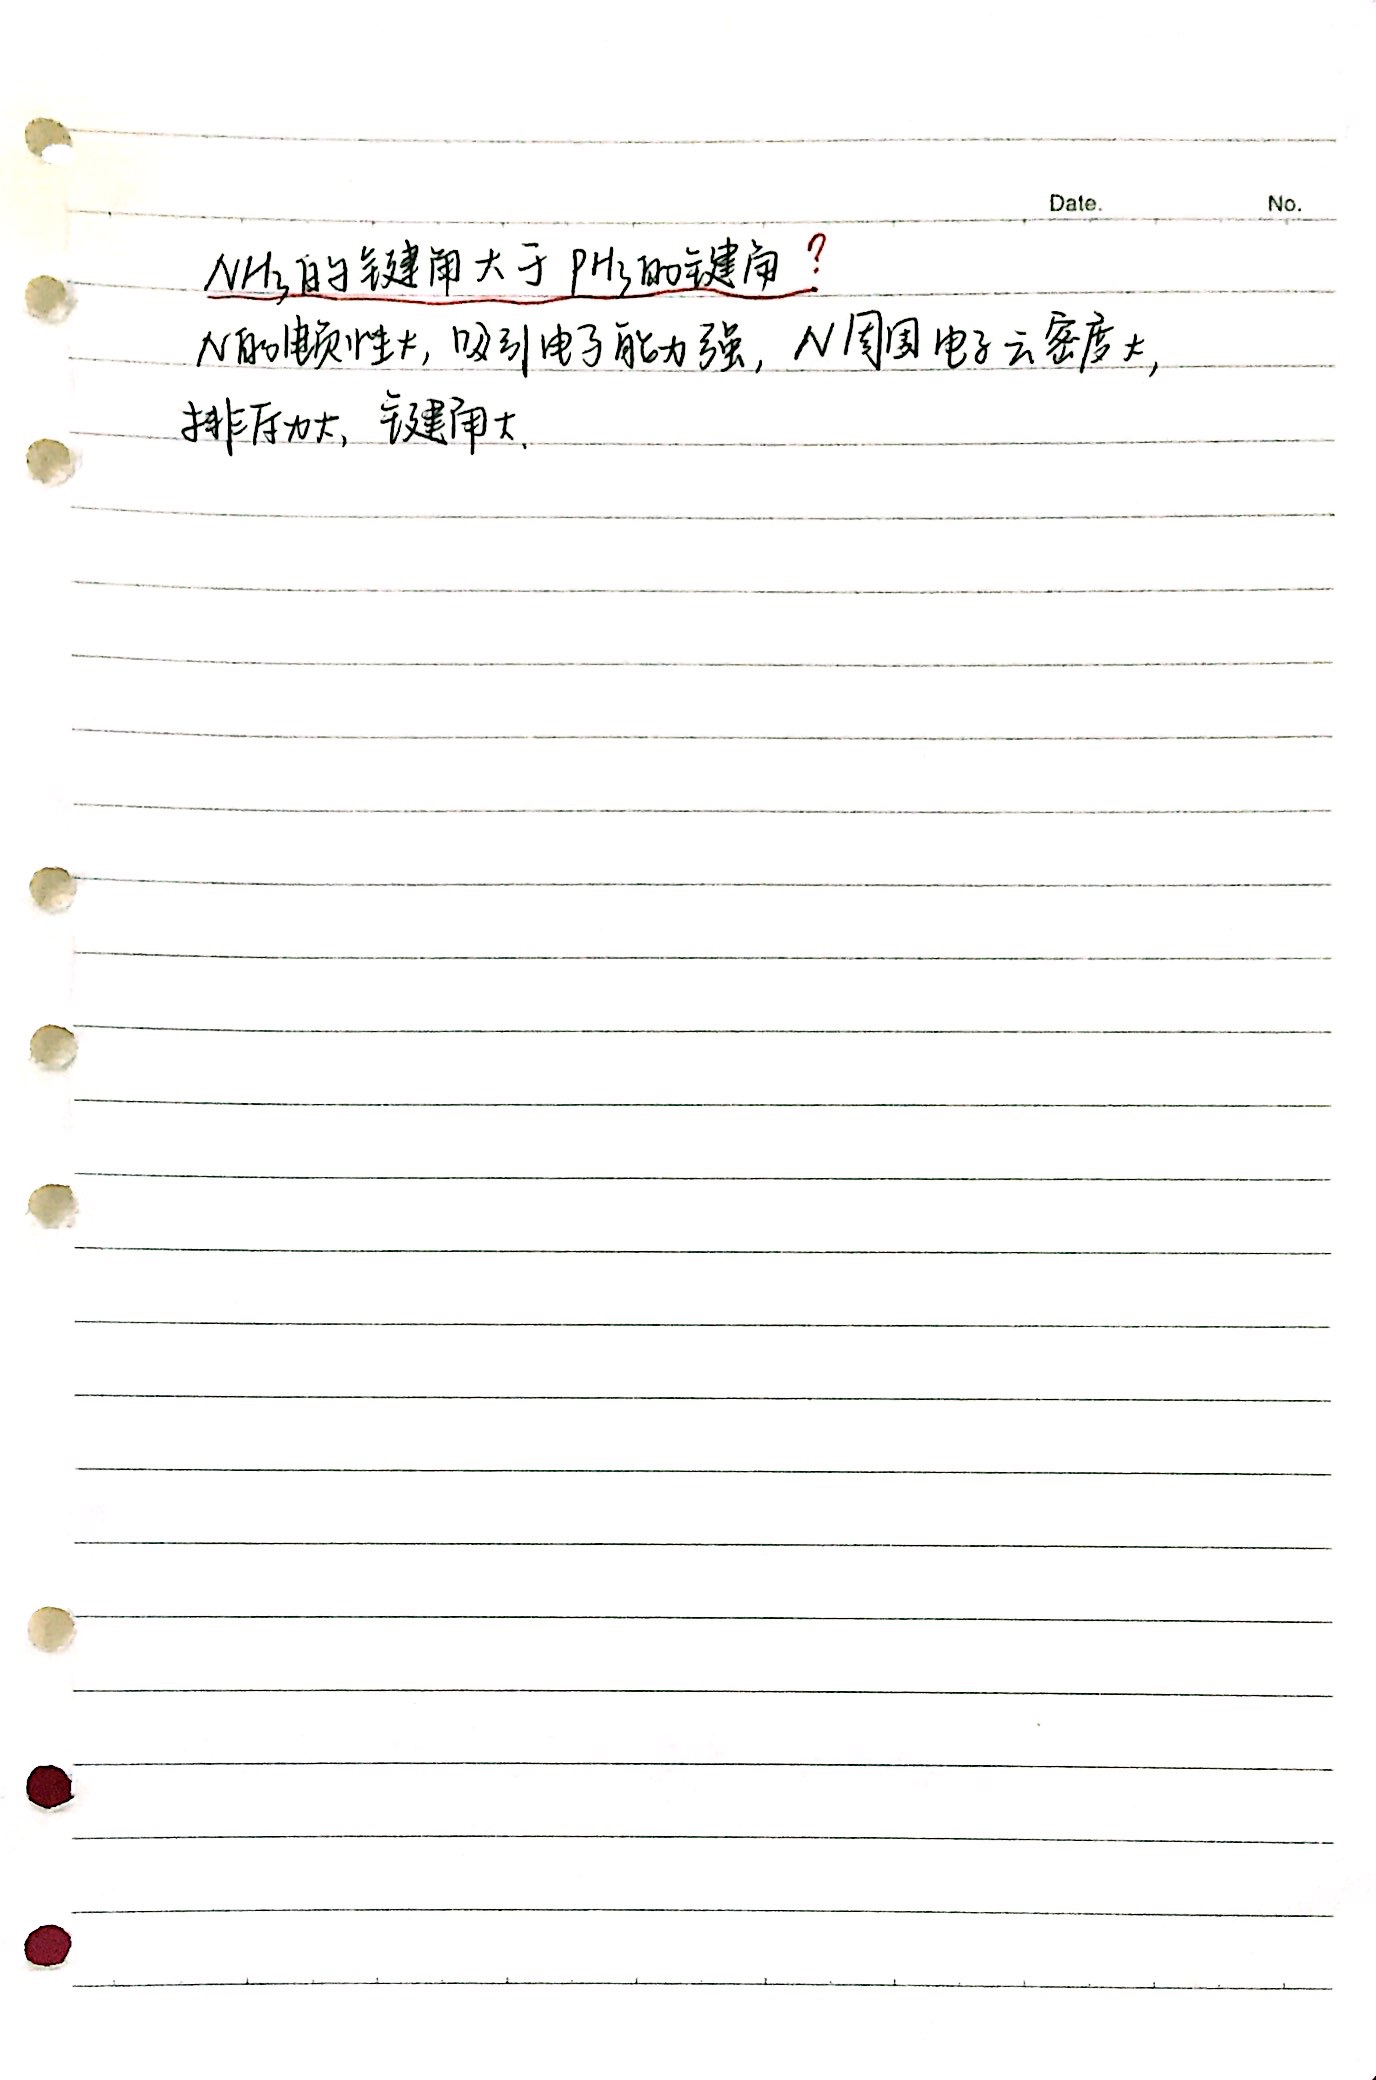 Date. No.
NH₃的键角大于PH₃的键角?
N的电负性大,吸引电子能力强,N周围电子云密度大,
排斥力大,键角大.